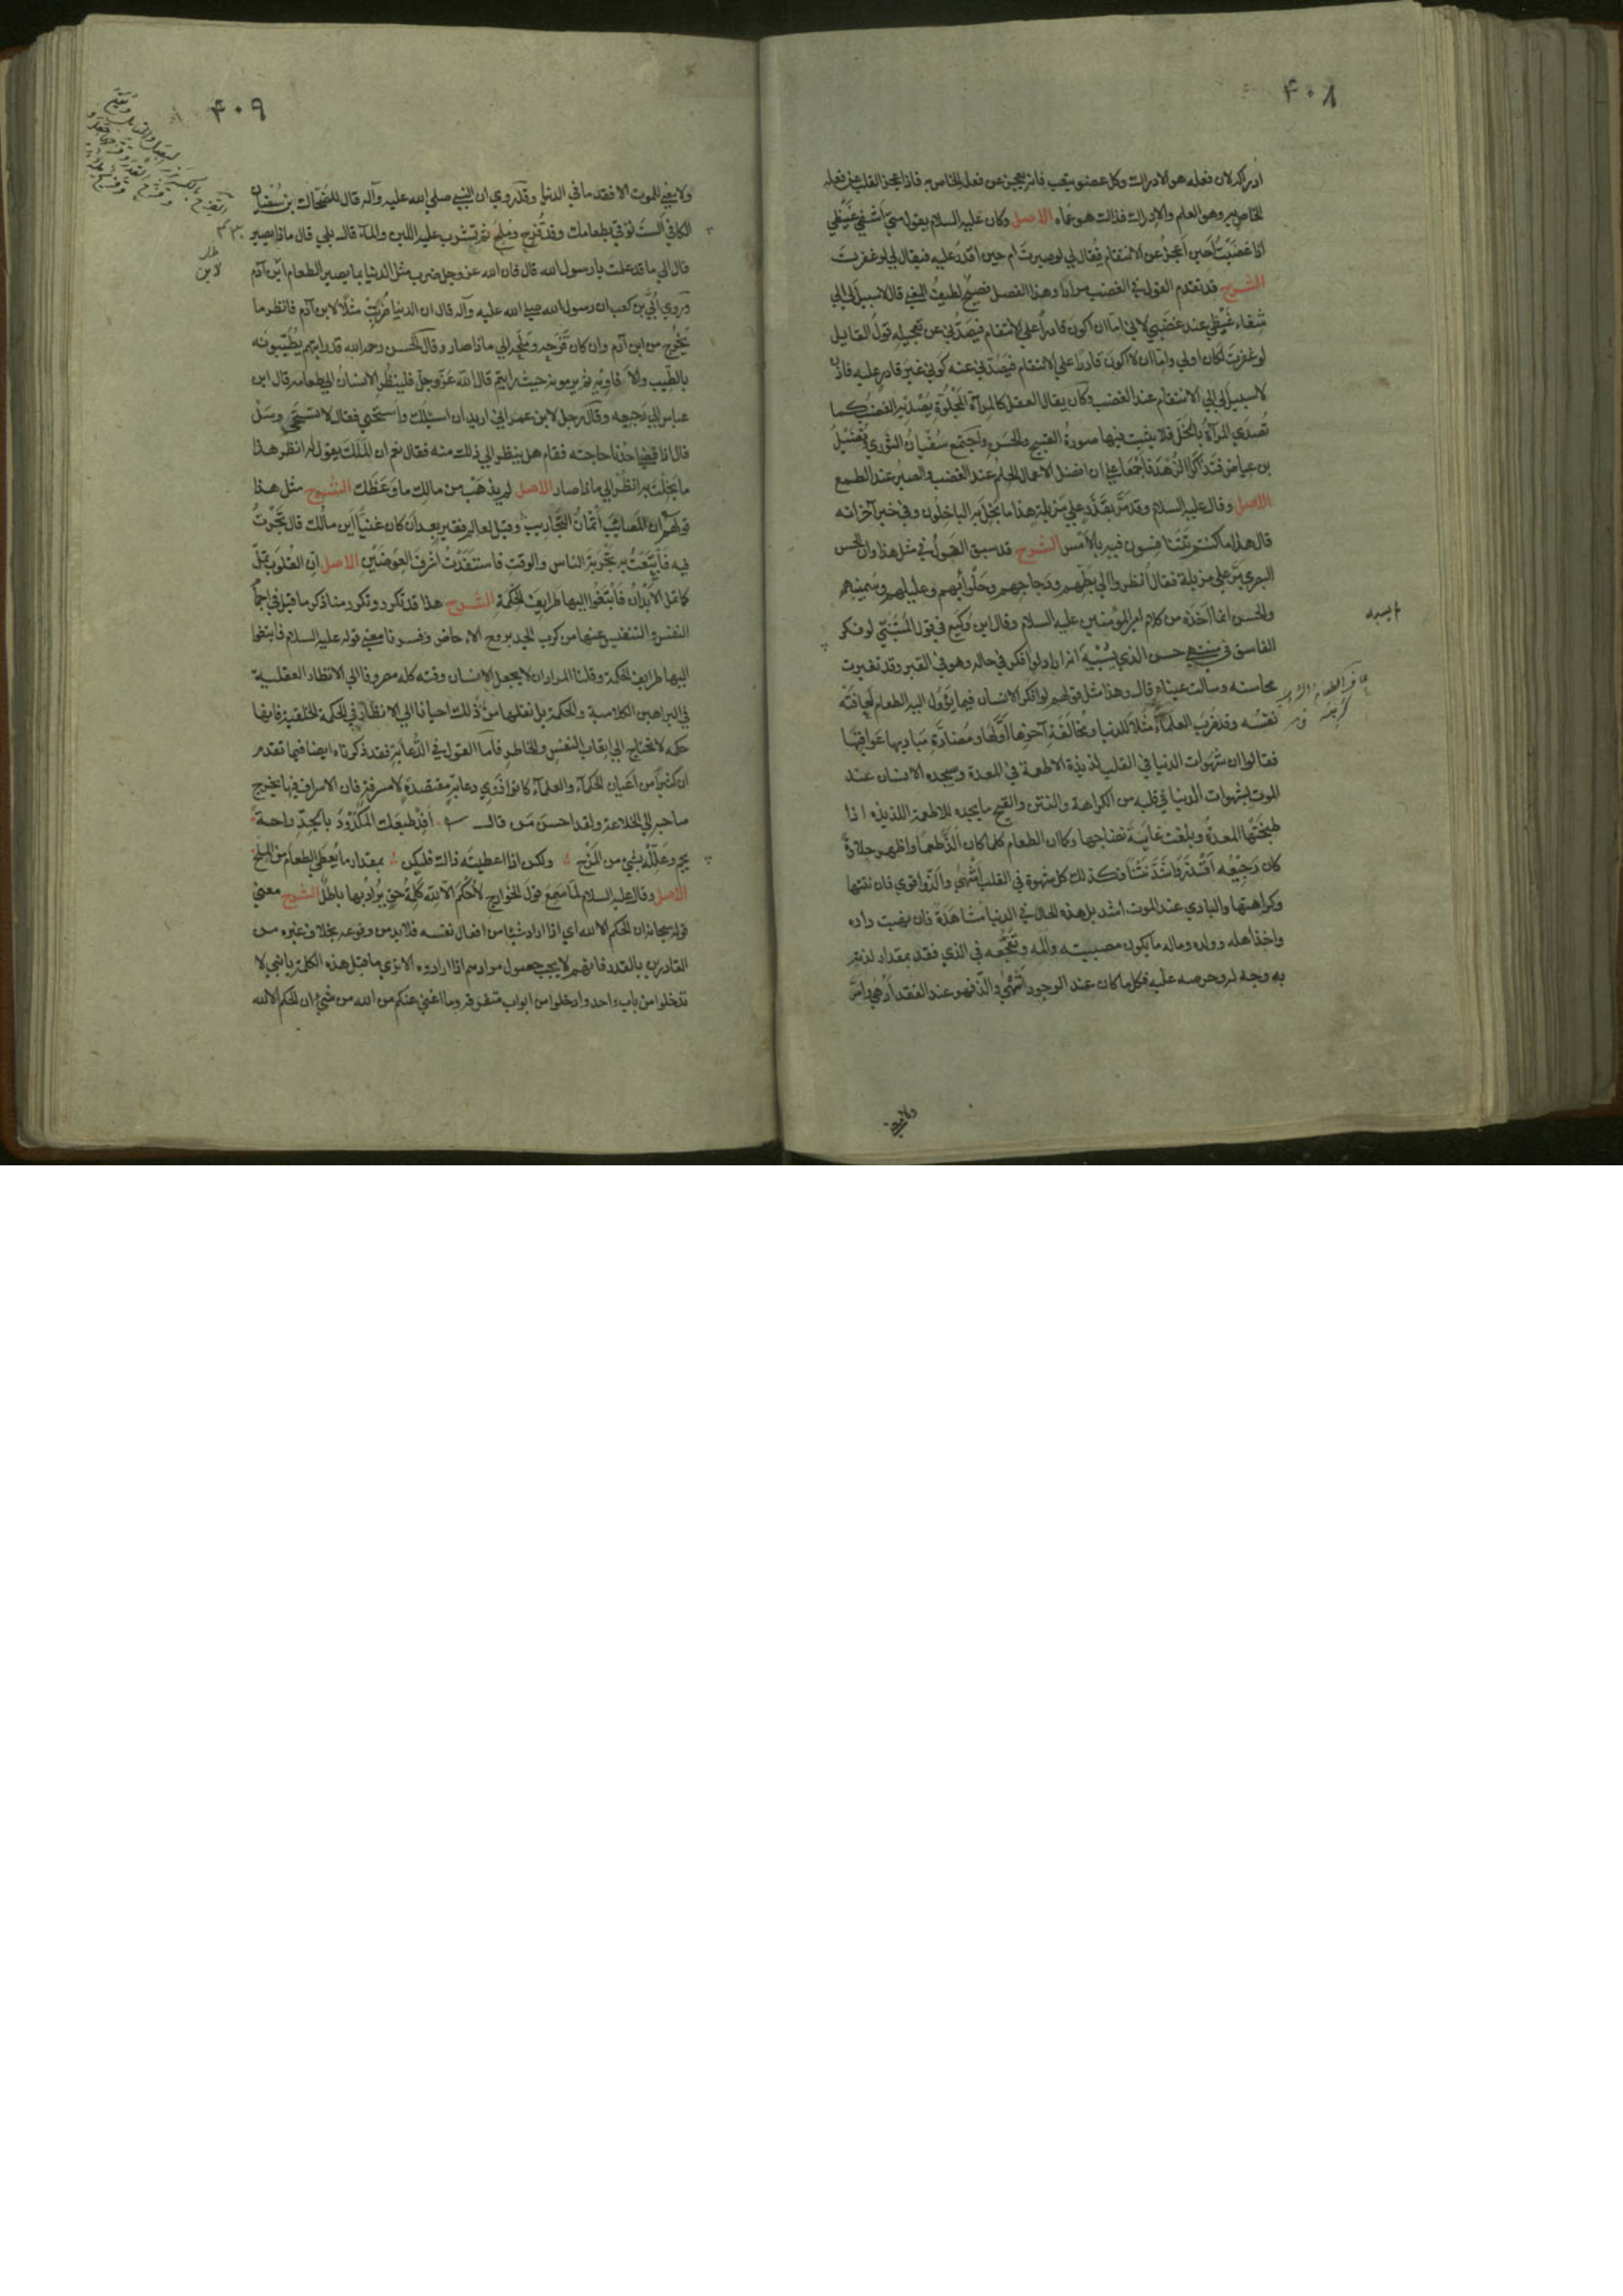 ۴۰۸
ادراكه لان فعله هو الادراك وكل عضو يتعب فانه يعجز عن فعله الخاص به فاذا عجز القلب عن فعله
الخاص به وهو العلم والادراك فذاك هو عماه الاصل وكان عليه السلام يقول متى اشفي غيظي
اذا غضبت احين اعجز عن الانتقام فيقال لي لو صبرت ام حين اقدر عليه فيقال لي لو غفرت
الشرح قد تقدم القول في الغضب مرارا وهذا الفصل فصيح لطيف المعنى قال لا سبيل لي الى
شفاء غيظي عند غضبي لاني اما ان اكون قادرا على الانتقام فيصدني عن تعجيله قول القايل
لو غفرت لكان اولى واما ان لا اكون قادرا على الانتقام فيصدني عنه كوني غير قادر عليه فاذن
لا سبيل لي الى الانتقام عند الغضب وكان يقال العقل كالمرآة المجلوة يصديه الغضب كما
تصدى المرآة بالخل فلا يثبت فيها صورة القبيح والحسن واجتمع سفيان الثوري وفضيل
بن عياض فتذاكرا الزهد فاجمعا على ان افضل الاعمال الحلم عند الغضب والصبر عند الطمع
الاصل وقال عليه السلام وقد مر بقذر على مزبلة هذا ما بخل به الباخلون وفي خبر آخر انه
قال هذا ما كنتم تتنافسون فيه بالامس الشرح قد سبق القول في مثل هذا وان الحسن
البصري مر على مزبلة فقال انظروا الى بطهم ودجاجهم وحلوائهم وعسلهم وسمنهم
والحسن انما اخذه من كلام امير المؤمنين عليه السلام وقال ابن وكيع في قول المتنبي لو فكر
العاشق في منتهى حسن الذي يسبيه انه اراد لو افكر في حاله وهو في القبر وقد تغيرت
محاسنه وسالت عيناه قال وهذا مثل قولهم لو افكر الانسان فيما يؤول اليه الطعام لعافته
نفسه وقد ضرب العلماء مثلا للدنيا ومخالفة آخرها اولها ومضادة مباديها عواقبها
فقالوا ان شهوات الدنيا في القلب لذيذة كالاطعمة في المعدة وسيجد الانسان عند
الموت لشهوات الدنيا في قلبه من الكراهة والنتن والقبح ما يجده للاطعمة اللذيذه اذا
طبختها المعدة وبلغت غاية نضاجها وكما ان الطعام كلما كان الذ طعما واظهر حلاوة
كان رجيعه اقذر واشد نتنا فكذلك كل شهوة في القلب اشهى والذ واقوى فان نتنها
وكراهتها والتاذي عند الموت اشد بل هذه الحال في الدنيا مشاهدة فان من نهبت داره
واخذ اهله وولده وماله ما يكون مصيبته والمه وتفجعه في الذي فقد بمقدار لذته
به وحبه له وحرصه عليه فكل ما كان عند الوجود اشهى والذ فهو عند الفقد ادهى وامر
ولا معنى
۴۰۹
ولا معنى للموت الا فقد ما في الدنيا وقد روي ان النبي صلى الله عليه وآله قال للضحاك بن سفيان
الكلابي الست تؤتى بطعامك وقد قزح وملح ثم تشرب عليه اللبن والماء قال بلى قال ماذا يصير
قال الى ما قد علمت يا رسول الله قال فان الله عز وجل ضرب مثل الدنيا بما يصير الطعام ابن آدم
وروى ابي بن كعب ان رسول الله صلى الله عليه وآله قال ان الدنيا ضربت مثلا لابن آدم فانظر ما
يخرج من ابن آدم وان كان قزحه وملحه الى ماذا صار وقال الحسن رحمه الله قد رايتهم يطيبونه
بالطيب والافاويه ثم يرمونه حيث رايتم قال الله عز وجل فلينظر الانسان الى طعامه قال ابن
عباس الى رجيعه وقال رجل لابن عمر اني اريد ان اسئلك واستحيي فقال لا تستحي وسل
قال اذا قضى احدنا حاجته فقام هل ينظر الى ذلك منه فقال نعم ان الملك يقول له انظر هذا
ما بخلت به انظر الى ماذا صار الاصل لم يذهب من مالك ما وعظك الشرح مثل هذا
قولهم ان المصائب اثمان التجارب وقيل لعالم فقير بعد ان كان غنيا اين مالك قال تجرت
فيه فابتعت به تجربة الناس والوقت فاستفدت اشرف العوضين الاصل ان القلوب تمل
كما تمل الابدان فابتغوا اليها طرايف الحكمة الشرح هذا قد تكرر وتكرر منا ذكر ما قيل في اجمام
النفس والتنفيس عنها من كرب الجد بروح الاحماض وفسرنا معنى قوله عليه السلام فابتغوا
اليها طرايف الحكمة وقلنا المراد ان لا يجعل الانسان وقته كله مصروفا الى الانظار العقلية
في البراهين الكلامية والحكمة بل ينقلها من ذلك احيانا الى الانظار في الحكمة الخلقية فانها
حكمه لا تحتاج الى اتعاب النفس والخاطر فاما القول في الدعابة فقد ذكرناه ايضا فيما تقدم
ان كثيرا من اعيان الحكماء والعلماء كانوا ذوي دعابة مقتصدة لا مسرفة فان الاسراف فيها يخرج
صاحبه الى الخلاعة ولقد احسن من قال افد طبعك المكدود بالجد راحة
يجم وعلله بشئ من المزح ولكن اذا اعطيته ذاك فليكن بمقدار ما يعطى الطعام من الملح
الاصل وقال عليه السلام لما سمع قول الخوارج لا حكم الا لله كلمة حق يراد بها باطل الشرح معنى
قوله سبحانه ان الحكم الا لله اي اذا اراد شيئا من افعال نفسه فلا بد من وقوعه بخلاف غيره من
القادرين بالقدرة فانهم لا يجب حصول مرادهم اذا ارادوه الا ترى ما قبل هذه الكلمة يا بني لا
تدخلوا من باب واحد وادخلوا من ابواب متفرقة وما اغني عنكم من الله من شئ ان الحكم الا لله